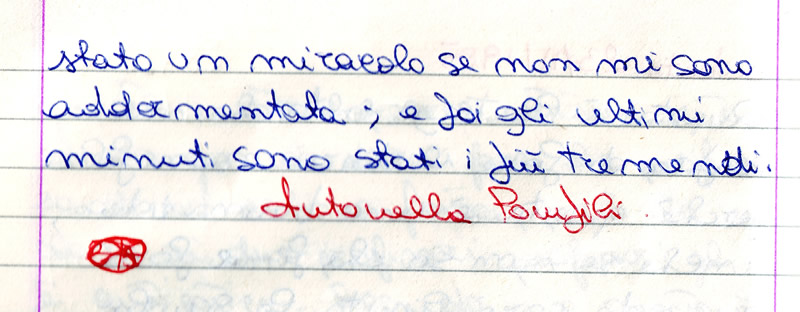 stato un miracolo se non mi sono
addormentata; e poi gli ultimi
minuti sono stati i più tremendi.
Antonella Pomfili.